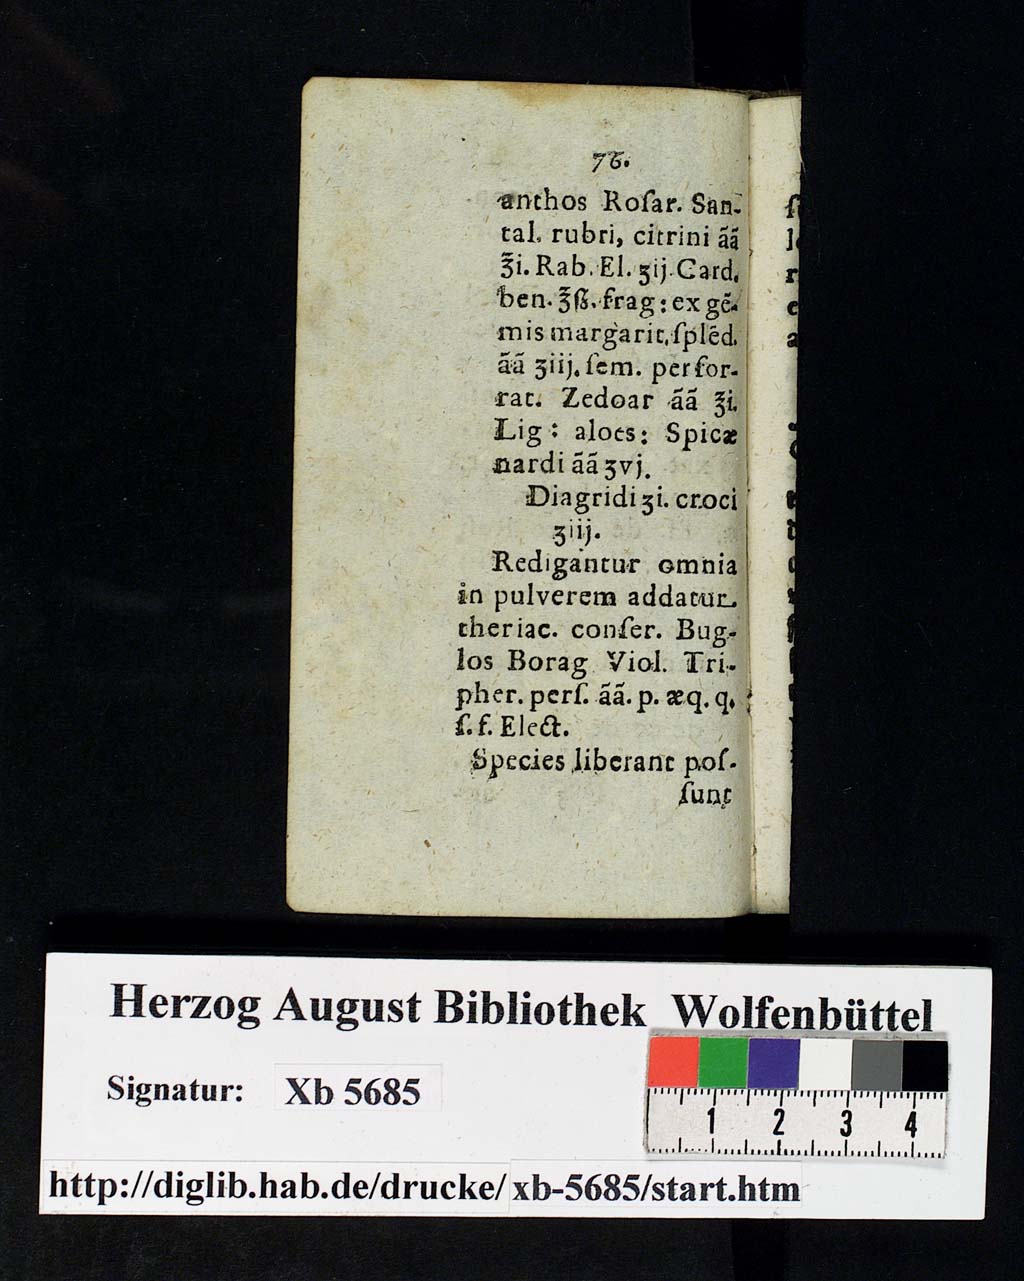 76.
anthos Roſar. San-
tal. rubri, citrini ãã
℥i. Rab. El. ʒij. Card.
ben. ℥ß. frag: ex gẽ-
mis margarit. ſplẽd.
ãã ʒiij. ſem. perfor-
rat. Zedoar ãã ℥i.
Lig: aloes: Spicæ
nardi ãã ʒvj.
Diagridi ʒi. croci
ʒiij.
Redigantur omnia
in pulverem addatur
theriac. conſer. Bug-
los Borag Viol. Tri-
pher. perſ. ãã. p. æq. q.
ſ. f. Elect.
Species liberant poſ-
ſunt
Herzog August Bibliothek Wolfenbüttel
Signatur: Xb 5685
1 2 3 4
http://diglib.hab.de/drucke/xb-5685/start.htm